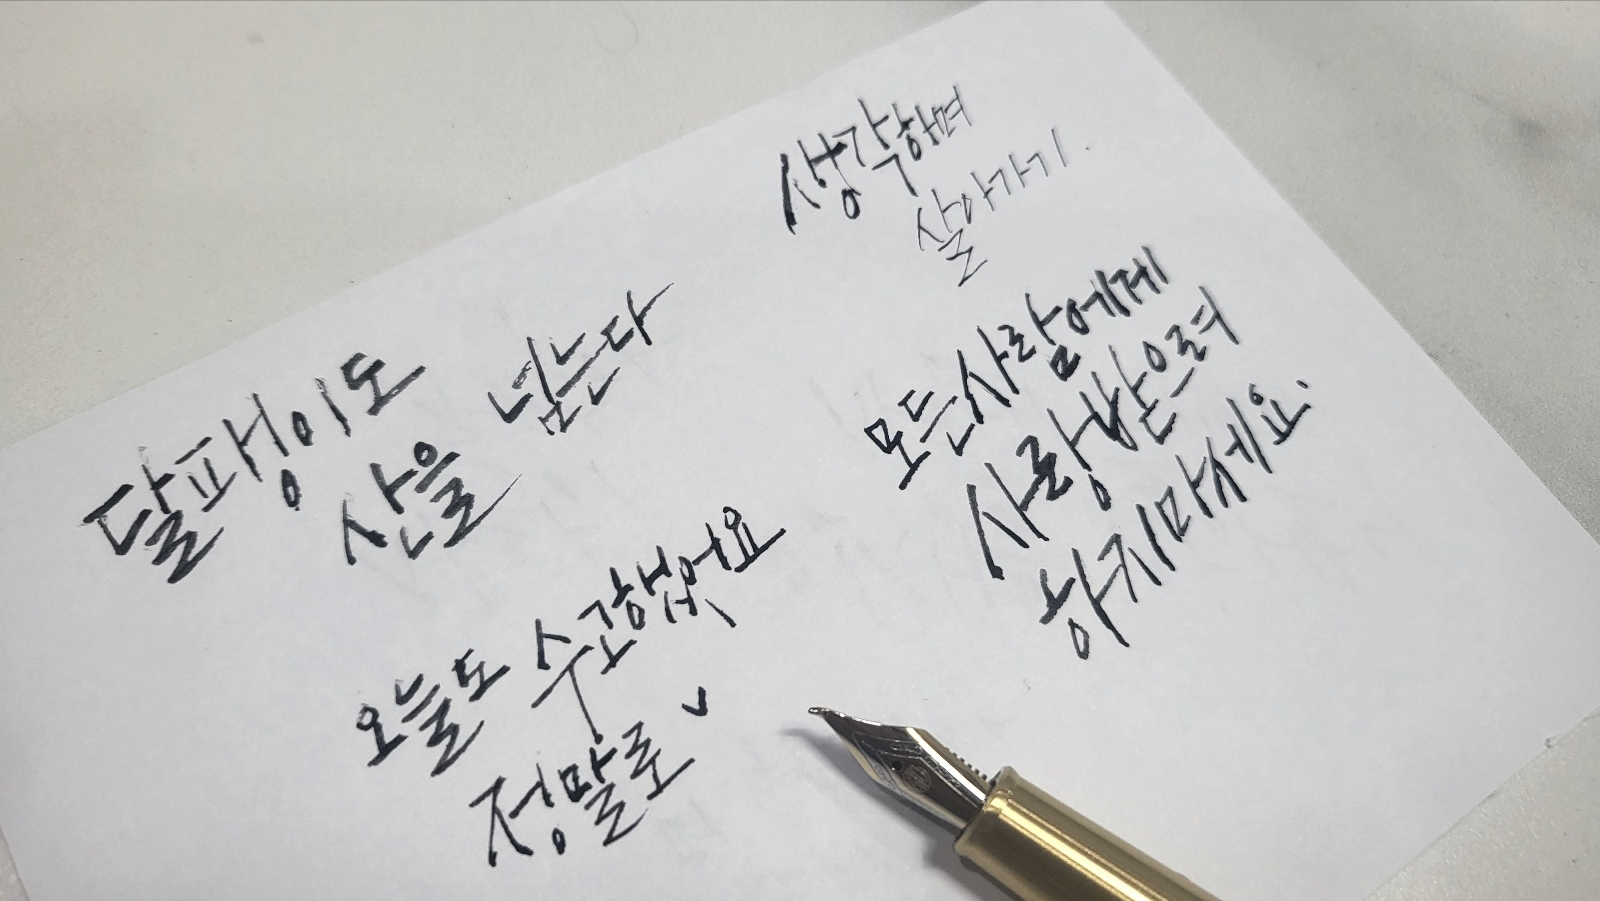 생각하며
살아가기.
달팽이도
산을 넘는다
모든사람에게
사랑받으려
하지마세요.
오늘도 수고했어요
정말로